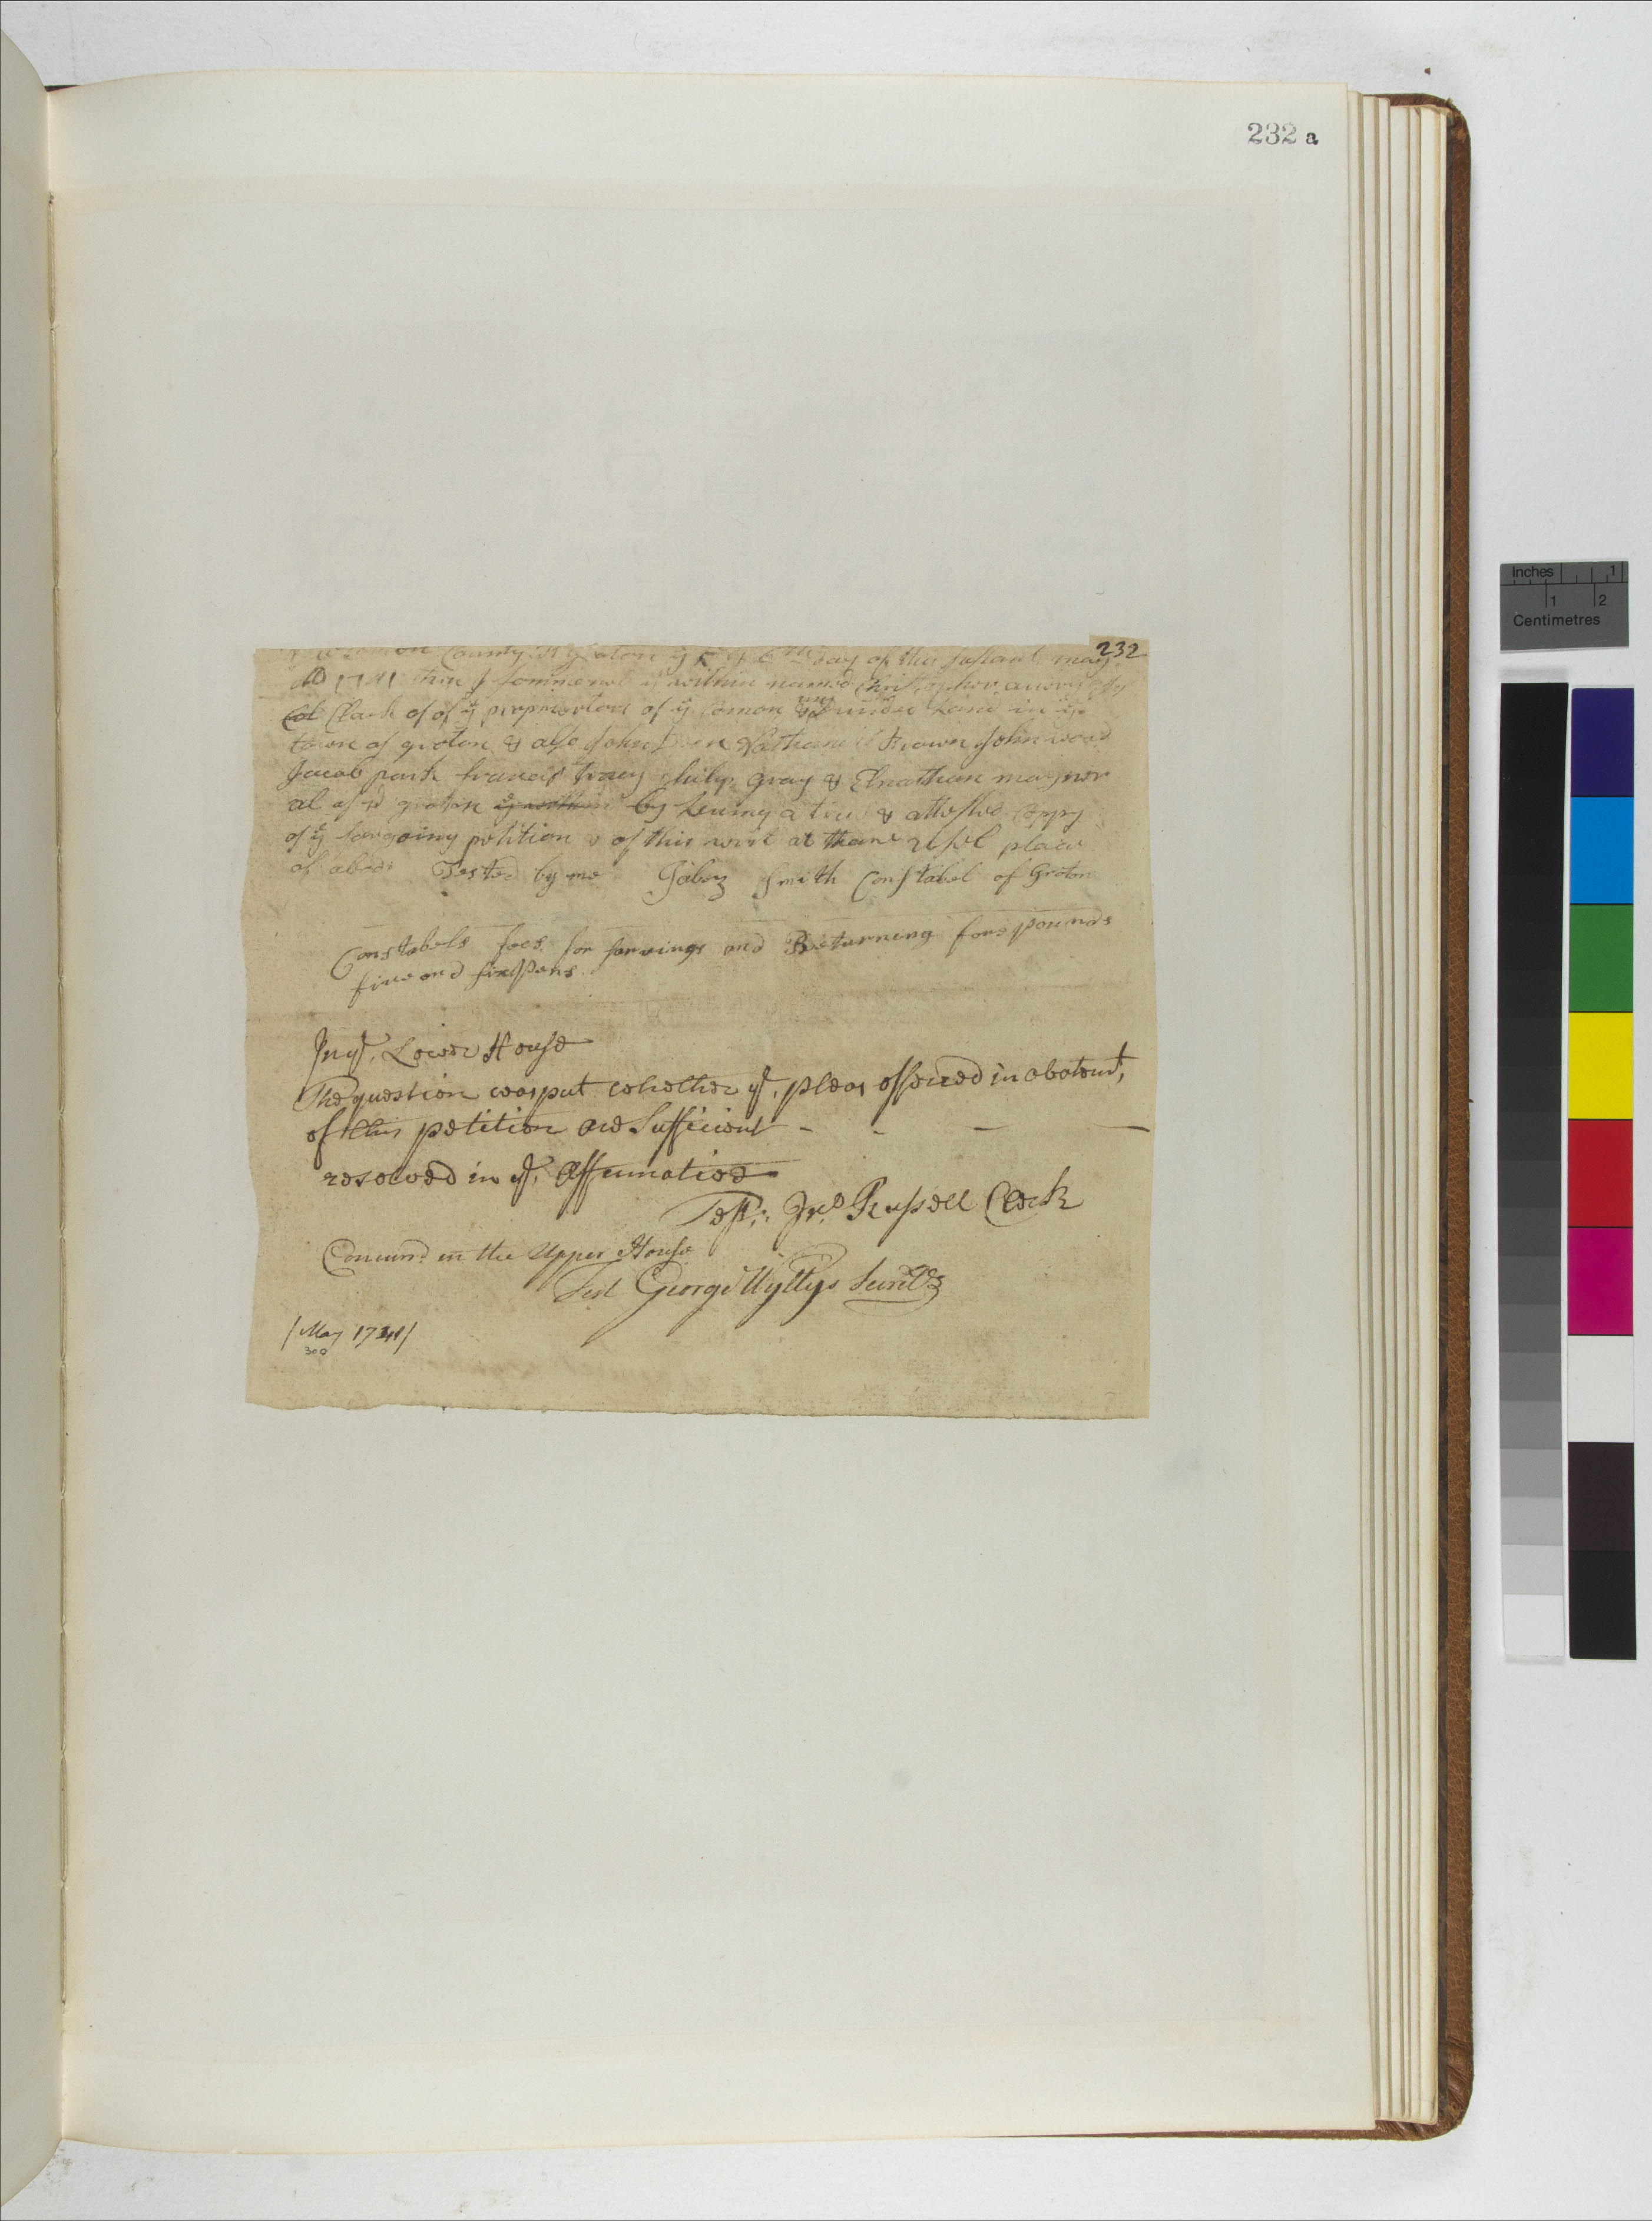 232 a
232
County Groton ye 6th Day of this Instant may
AD 1741 then I ye within named Christopher avery
Clark of of ye propriortors of ye Comon & Land in ye
town of groton & also John Nathaniel Brown John wood
Jacob park francis Tracy philip Gray & Elnathan maynor
al of sd groton ye within by Leving a true & attested Coppy
of ye forgoing petition & of this writ at thare usel place
of abode Tested by me Jabez Smith Constabel of Groton
Constabels fees for sarving and Returning fore pounds
five and sixpens
In ye. Lower House
The question was put whether ye. pleas offered in abatemt,
of this petition are Sufficient - - - -
resolved in ye. Affermative
Test: Jno. Russell Clerk
Concurrd. in the Upper House
Test George Wyllys Secrety
/May 1741/
300
Inches 1
1 2
Centimetres